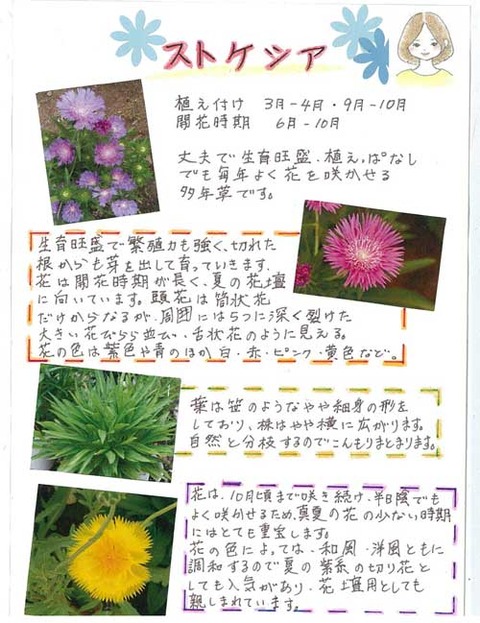 ストケシア
植え付け 3月-4月・9月-10月
開花時期 6月-10月
丈夫で生育旺盛.植えっぱなし
でも毎年よく花を咲かせる
多年草です。
生育旺盛で繁殖力も強く、切れた
根からも芽を出して育っていきます.
花は開花時期が長く、夏の花壇
に向いています。頭花は筒状花
だけからなるが、周囲には5つに深く裂けた
大きい花びらら並び、舌状花のように見える。
花の色は紫色や青のほか、白・赤・ピンク・黄色など。
葉は笹のようなやや細身の形を
しており、株はやや横に広がります。
自然と分枝するのでこんもりまとまります。
花は、10月頃まで咲き続け、半日陰でも
よく咲かせるため、真夏の花の少ない時期
にはとても重宝します。
花の色によっては、和風・洋風ともに
調和するので夏の紫系の切り花と
しても人気があり、花壇用としても
親しまれています。